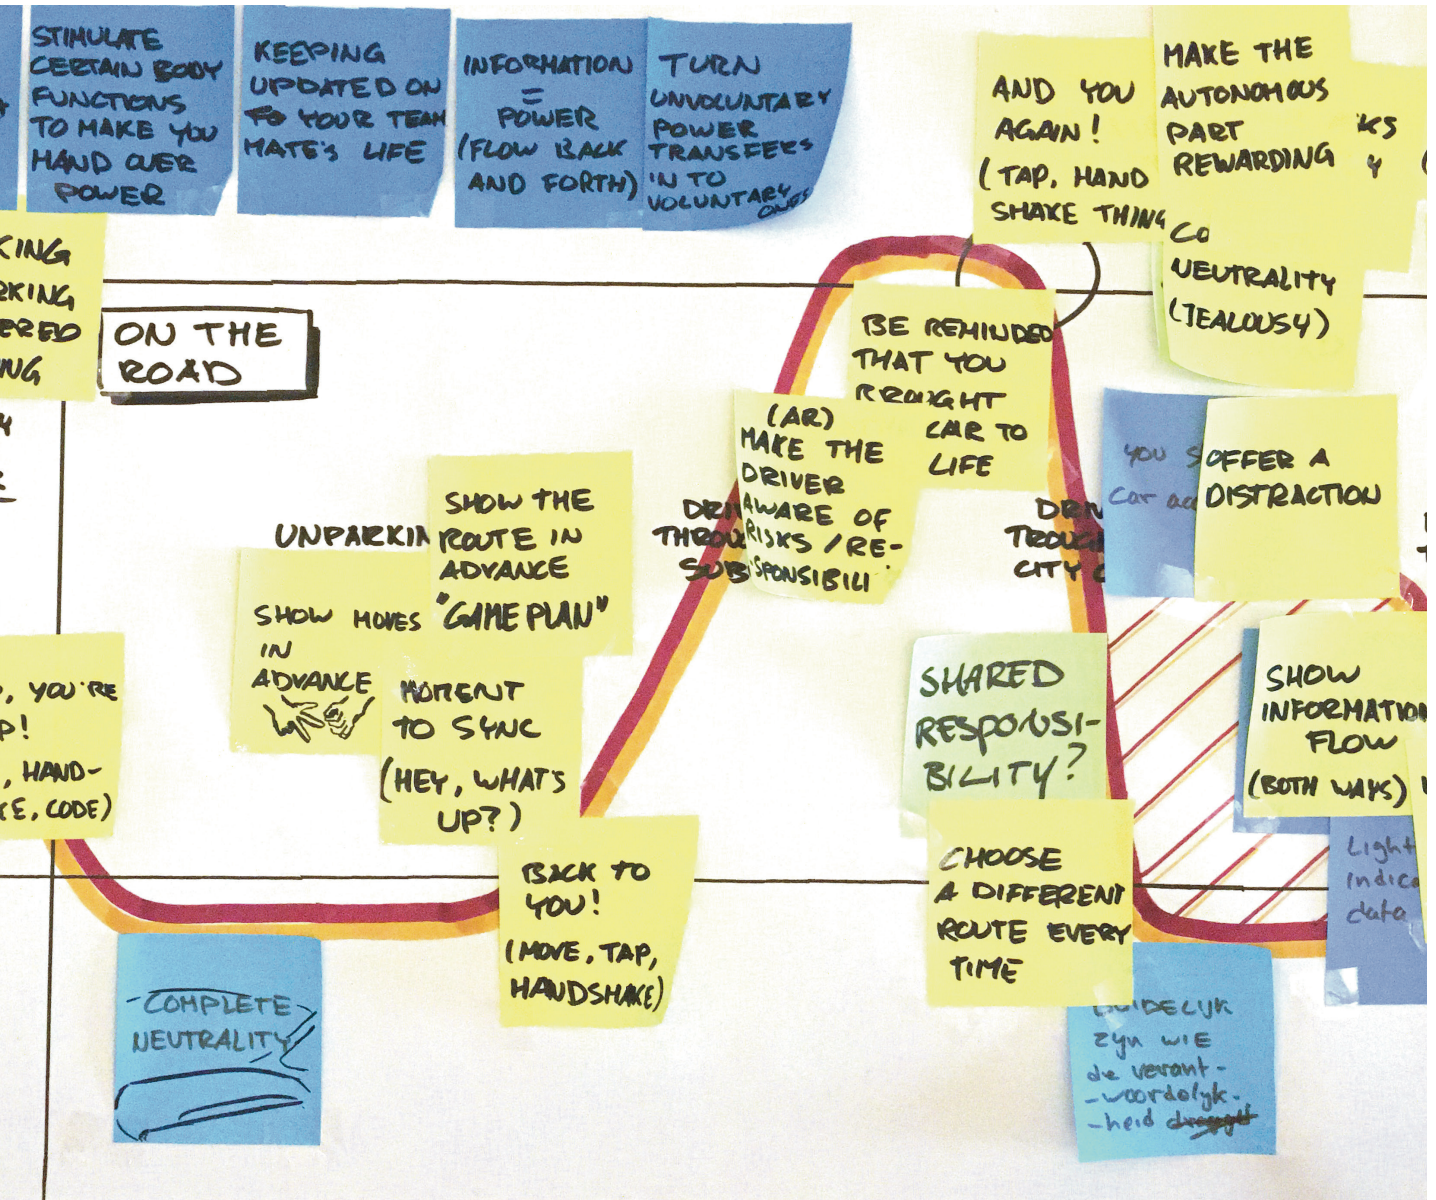 STIMULATE
CERTAIN BODY
FUNCTIONS
TO MAKE YOU
HAND OVER
POWER
KEEPING
UPDATED ON
YOUR TEAM
MATE'S LIFE
INFORMATION
=
POWER
(FLOW BACK
AND FORTH)
TURN
UNVOLUNTARY
POWER
TRANSFERS
IN TO
VOLUNTARY
ONES
AND YOU
AGAIN!
(TAP, HAND
SHAKE THING
MAKE THE
AUTONOMOUS
PART
REWARDING
CO
NEUTRALITY
(JEALOUSY)
KING
RKING
ERED
NG
ON THE
ROAD
BE REMINDED
THAT YOU
BROUGHT
CAR TO
LIFE
(AR)
MAKE THE
DRIVER
AWARE OF
RISKS / RE-
SPONSIBILI
YOU S
Car
OFFER A
DISTRACTION
UNPARKIN
SHOW THE
ROUTE IN
ADVANCE
"GAME PLAN"
DRIV
THROU
SUB
DRIV
TROUGH
CITY C
SHOW MOVES
IN
ADVANCE
MOMENT
TO SYNC
(HEY, WHAT'S
UP?)
, YOU'RE
P!
, HAND-
KE, CODE)
SHARED
RESPONSI-
BILITY?
SHOW
INFORMATION
FLOW
(BOTH WAYS)
BACK TO
YOU!
(MOVE, TAP,
HANDSHAKE)
CHOOSE
A DIFFERENT
ROUTE EVERY
TIME
Light
Indica
data
COMPLETE
NEUTRALITY
DUIDELIJK
zijn wie
de verant-
-woordelijk-
-heid